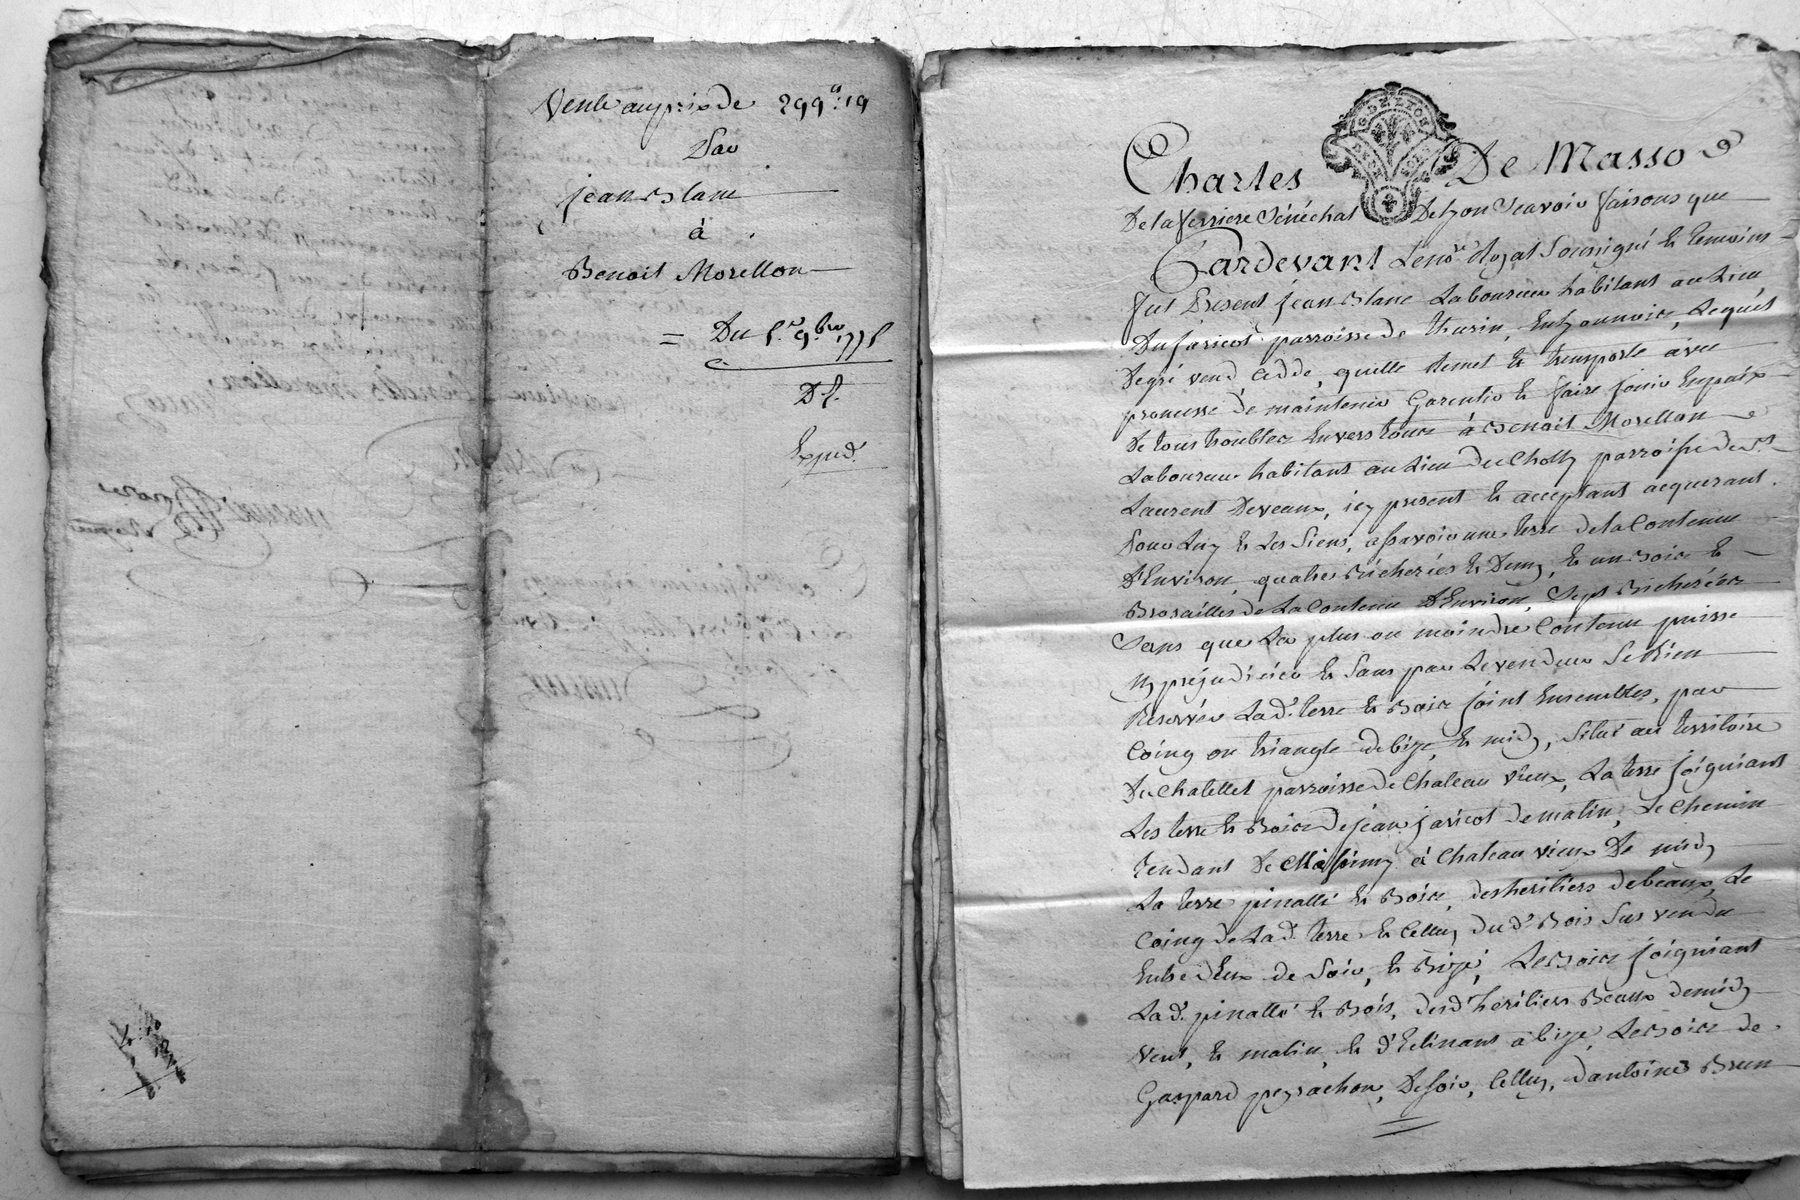 Vente au prix de 299ᵗᵗ: 19
Par
jean Blanc
à
Benoit Morellon
= Du 5.ᵉ 9.bre 1775
Exped.
G. DE LYON
Charles De Masso
De la ferriere Sénéchal De Lyon Scavoir faisons que
Pardevant Le no.re Royal Soussigné & temoins
fut Présent jean Blanc Laboureur habitant au Lieu
Du jaricot parroisse de thurin, En Lyonnois, Lequel
De gré vend, cedde, quitte Remet & transporte avec
promesse de maintenir Garentir & faire jouir En paix
De tous troubles Envers tous à Benoit Morellon
Laboureur habitant au Lieu du Cholly parroisse de St
Laurent Devaux, icy present & acceptant acquerant
Pour Luy & Les Siens, assavoir une terre de la Contenue
D'Environ, quatres Bicherées & Demy, & un Bois &
Brosailles de La Contenue D'Environ, Sept Bicherées
Sans que La plus ou moindre Contenue puisse
Y préjudicier & Sans par Le vendeur Se Rien
Reserver La d.e terre & Bois joint Ensembles, par
Coing ou triangle de bize, & midy, Situé au territoire
Du Chatellet parroisse de Chateau vieux, La terre joignant
Les terre & Bois De jean jaricot de matin, Le Chemin
tendant De Messimy à Chateau vieux De midy
La terre pinallé & Bois, des heritiers de beaux, Le
Coing de La d.e terre & Celluy du d.t Bois Sus vendu
Entre deux de Soir, & Bize, Le Bois joignant
La d.e pinallé & Bois, des d.ts héritiers Beaux de midy
Vent, & matin, & d'Eclinant a bize, Le Bois de
Gaspard peyrachon, De Soir, Celluy, d'antoine Brun